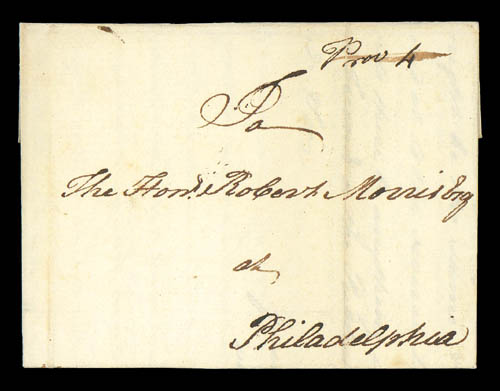 Prov 4
To
The Honl. Robert Morris Esq
at
Philadelphia